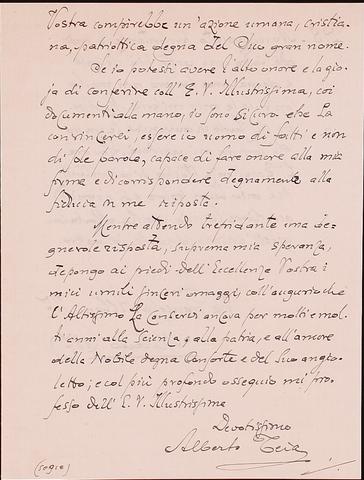 Vostra compirebbe un'azione umana, cristia-
na, patriottica degna del Suo gran nome.
Se io potessi avere l'alto onore e la gio-
ja di conferire coll'E. V. Illustrissima, coi
documenti alla mano, io sono sicuro che La
convincerei, essere io uomo di fatti e non
di sole parole, capace di fare onore alla mia
firma e di corrispondere degnamente alla
fiducia in me riposta.
Mentre attendo trepidante una de-
gnevole risposta, suprema mia speranza,
depongo ai piedi dell'Eccellenza Vostra i
miei umili sinceri omaggi, coll'augurio che
l'Altissimo La conservi ancora per molti e mol-
ti anni alla scienza, alla patria, e all'amore
della Nobile degna Consorte e del Suo angio-
letto; e col più profondo ossequio mi pro-
fesso dell'E. V. Illustrissima
Devotissimo
Alberto